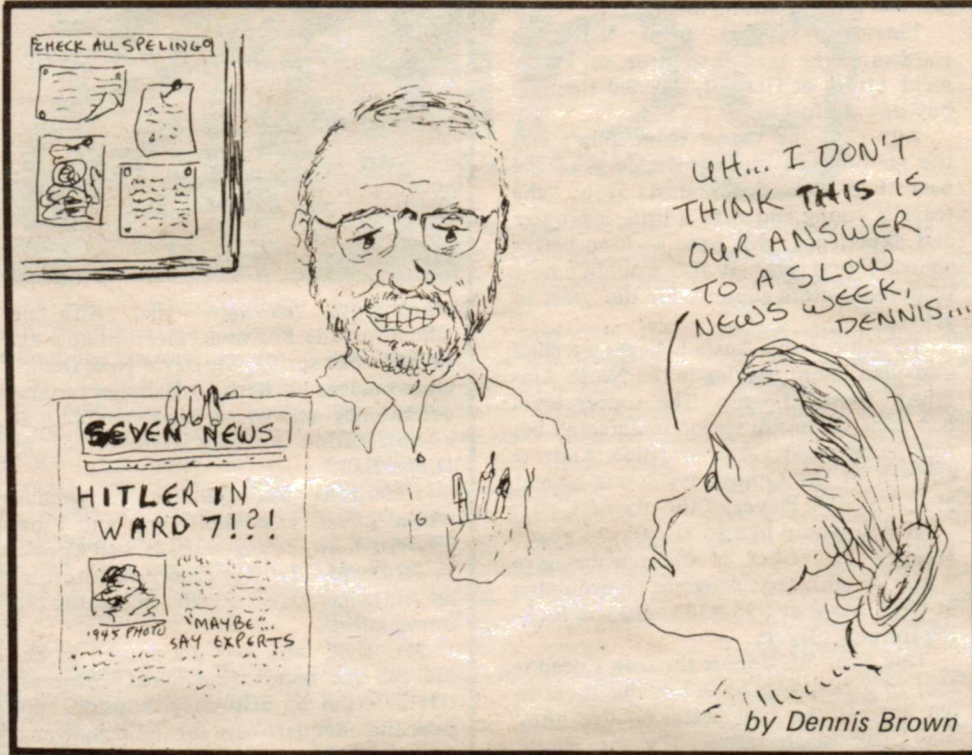 CHECK ALL SPELING
UH... I DON'T
THINK THIS IS
OUR ANSWER
TO A SLOW
NEWS WEEK,
DENNIS...
SEVEN NEWS
HITLER IN
WARD 7!?!
1945 PHOTO
"MAYBE"...
SAY EXPERTS
by Dennis Brown